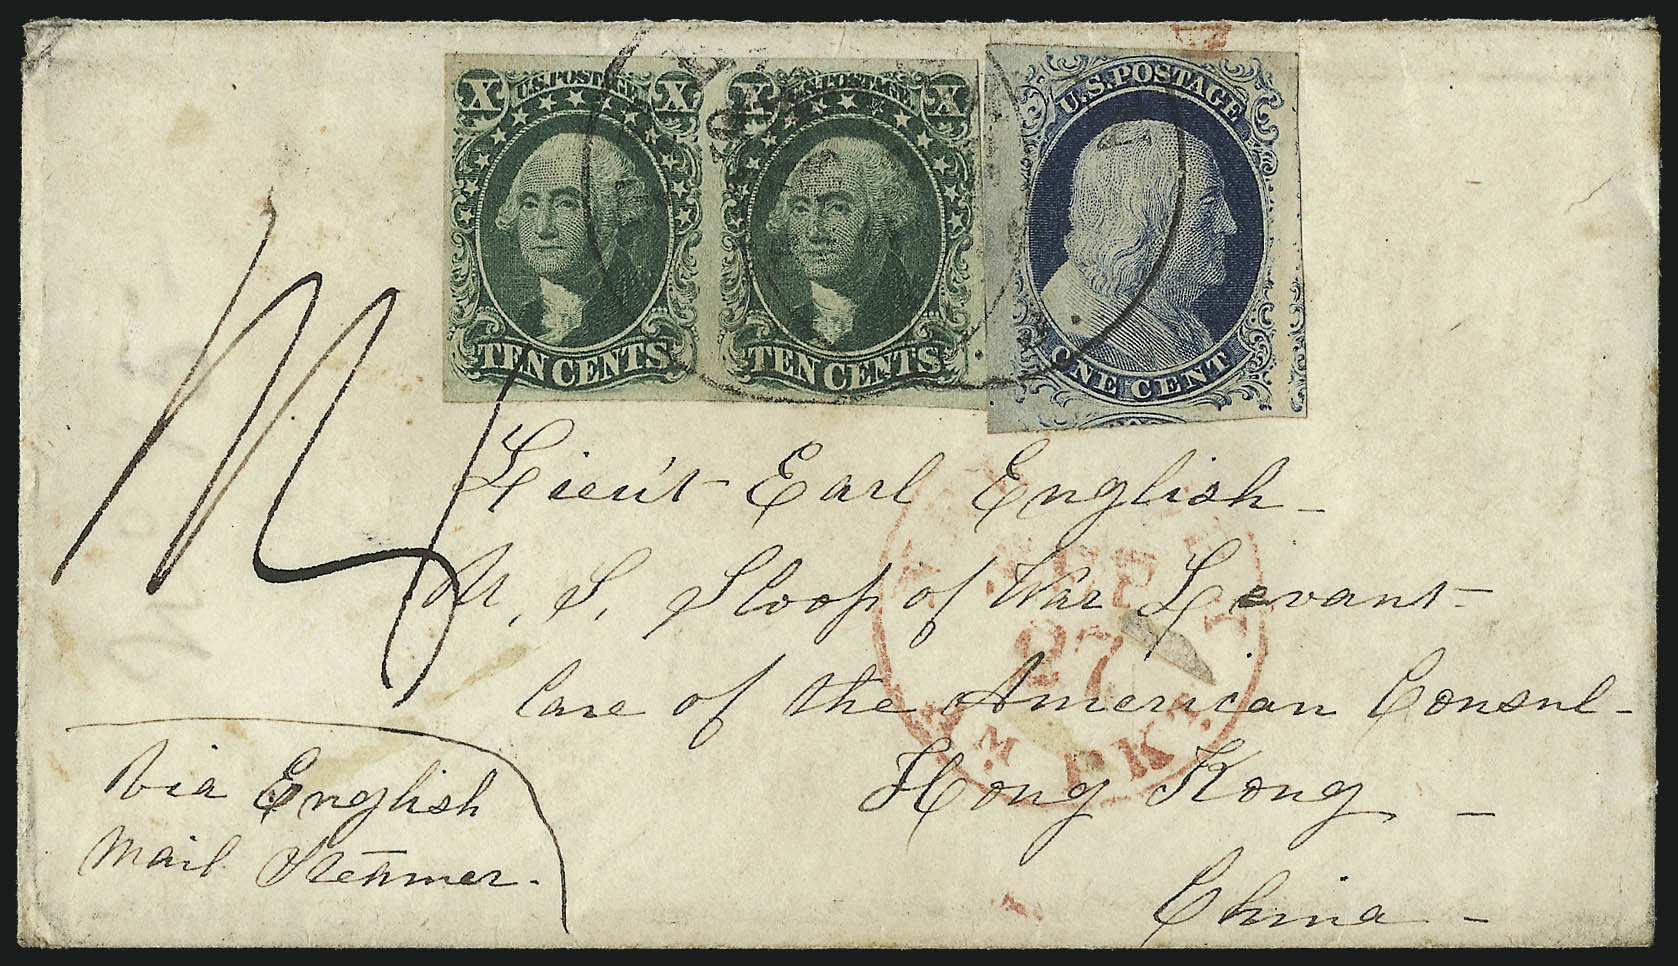 X U.S. POSTAGE X
TEN CENTS
X U.S. POSTAGE X
TEN CENTS
U.S. POSTAGE
ONE CENT
Lieu't Earl English
U. S. Sloop of War Levant
Care of the American Consul
Hong Kong
China
Via English
Mail Steamer.
27
AM. PKT.